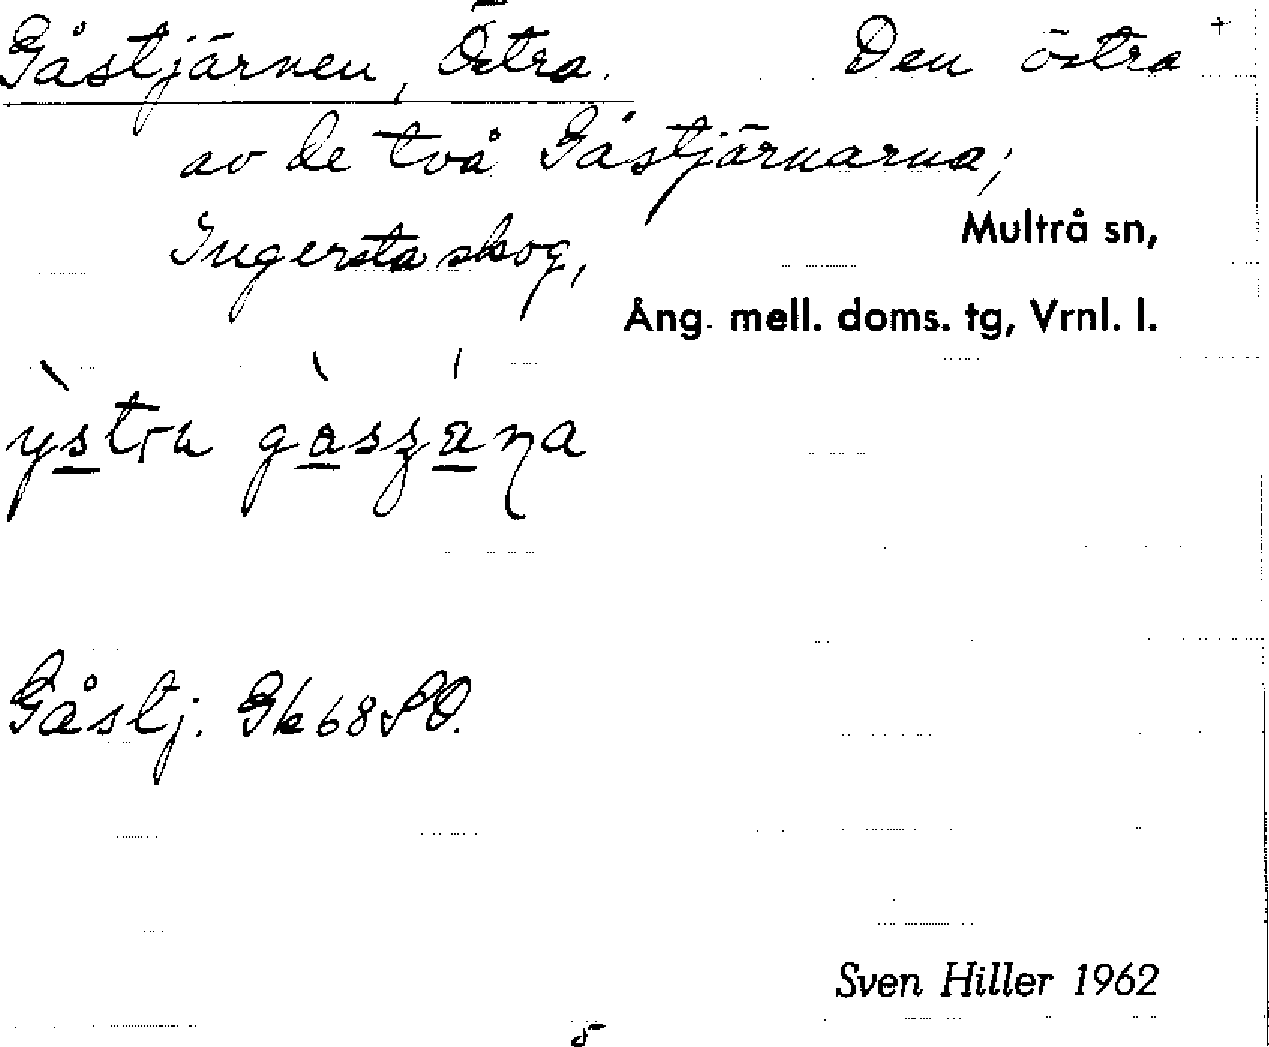 Gåstjärnen, Östra. Den östra +
av de två Gåstjärnarna;
Ingersta skog,
Multrå sn,
Ång. mell. doms. tg, Vrnl. l.
Gåstj. Gk 68 SO.
Sven Hiller 1962